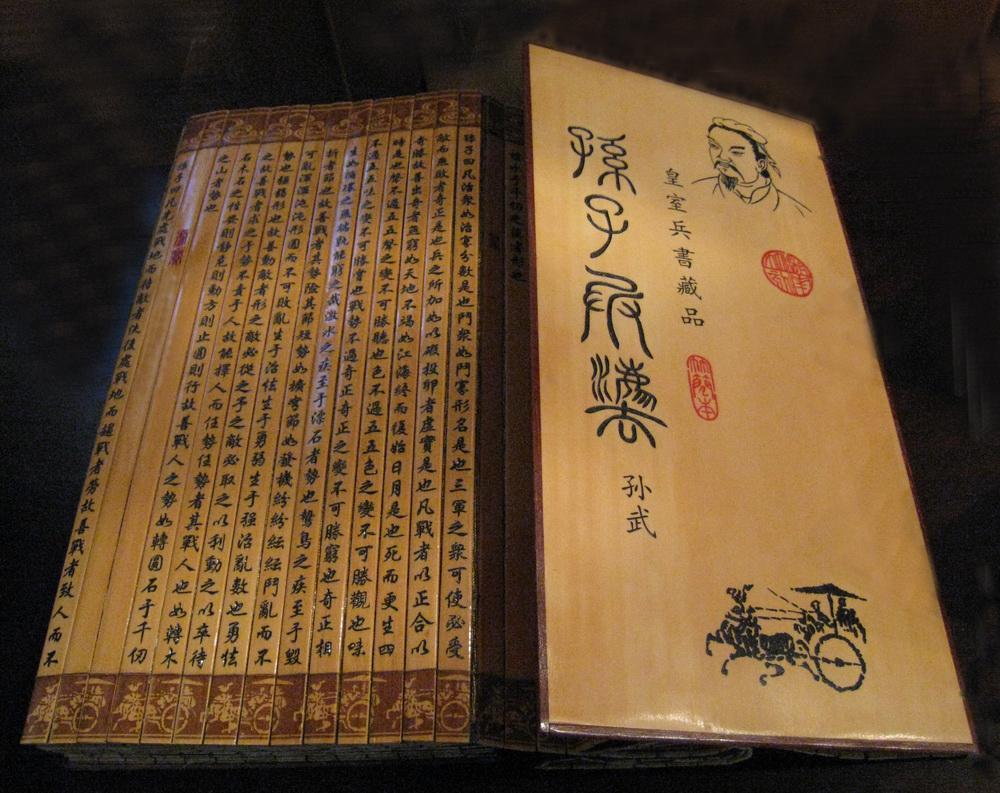 皇室兵書藏品
竹簡本
孫子兵法
孙武
孫子曰凡治衆如治寡分數是也鬥衆如鬥寡形名是也三軍之衆可使必受
敵而無敗者奇正是也兵之所加如以碬投卵者虛實是也凡戰者以正合以
奇勝故善出奇者無窮如天地不竭如江海終而復始日月是也死而更生四
時是也聲不過五五聲之變不可勝聽也色不過五五色之變不可勝觀也味
不過五五味之變不可勝嘗也戰勢不過奇正奇正之變不可勝窮也奇正相
生如循環之無端孰能窮之哉激水之疾至于漂石者勢也鷙鳥之疾至于毀
折者節也故善戰者其勢險其節短勢如擴弩節如發機紛紛紜紜鬥亂而不
可亂渾渾沌沌形圓而不可敗亂生于治怯生于勇弱生于强治亂數也勇怯
勢也强弱形也故善動敵者形之敵必從之予之敵必取之以利動之以卒待
之故善戰者求之于勢不責于人故能擇人而任勢任勢者其戰人也如轉木
石木石之性安則靜危則動方則止圓則行故善戰人之勢如轉圓石于千仞
之山者勢也
孫子曰凡先處戰地而待敵者佚後處戰地而趨戰者勞故善戰者致人而不